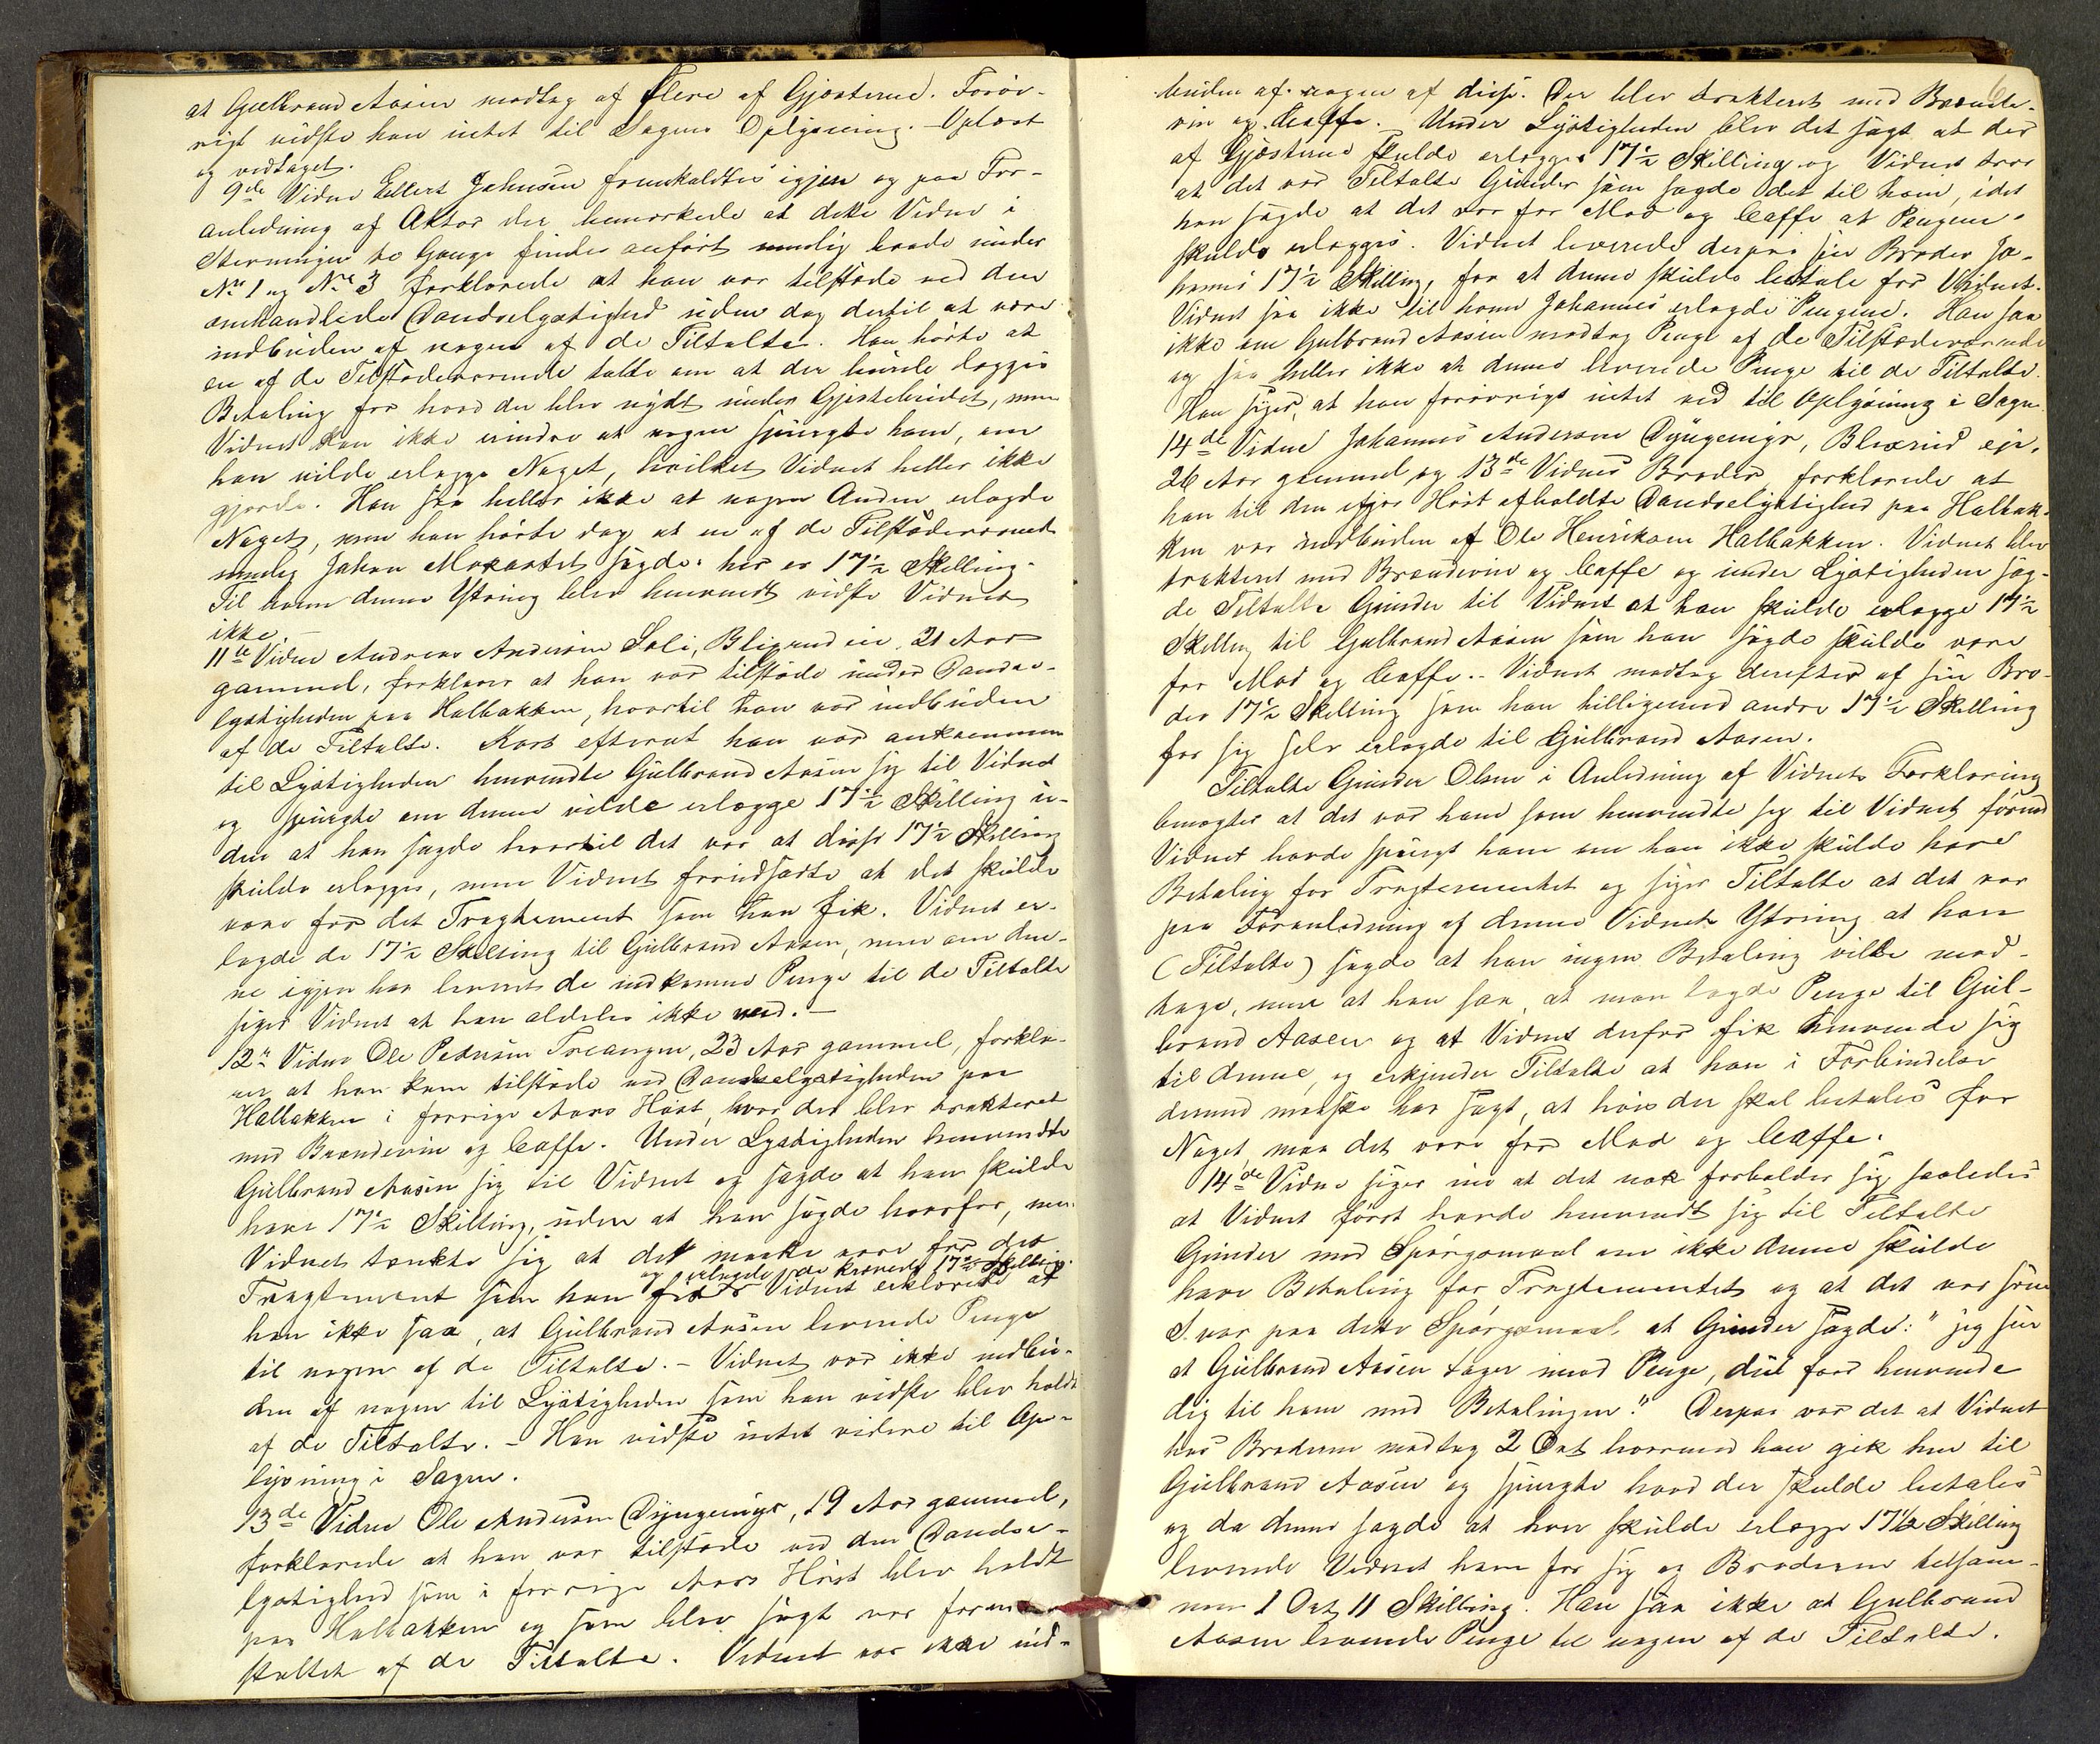 at Gulbrand Aasen modtog af Flere af Gjæsterne. Forøv-
rigt vidste han intet til Sagens Oplysning. – Oplæst
og vedtaget.
9de Vidne Ellert Johnsen fremkaldtes igjen og paa For-
anledning af Aktor der bemærkede at dette Vidne i
Stevningen to Gange findes anført nemlig baade under
No 1 og No 3 forklarede at han var tilstede ved den
omhandlede Dandselystighed uden dog dertil at være
indbuden af nogen af de Tiltalte. Han hørte at
en af de Tilstedeværende talte om at der burde lægges
Betaling for hvad der blev nydt under Gjæstebudet, men
Vidnet kan ikke erindre at nogen spurgte ham, om
han vilde erlægge Noget, hvilket Vidnet heller ikke
gjorde. Han saa heller ikke at nogen Anden erlagde
Noget, men han hørte dog at en af de Tilstedeværende
nemlig Johan sagde: her er 17½ Skilling.
Til hvem denne Ytring blev henvendt vidste Vidnet
ikke. –
11te Vidne Andreas Andersen Soli, Blixrud eie, 21 Aar
gammel, forklarer at han var tilstede under Dandse-
lystigheden paa Halbakken, hvortil han var indbuden
af de Tiltalte. Kort efterat han var ankommen
til Lystigheden henvendte Gulbrand Aasen sig til Vidnet
og spurgte om denne vilde erlægge 17½ Skilling u-
den at han sagde hvortil det var at disse 17½ Skilling
skulde erlægges, men Vidnet forudsatte at det skulde
være for det Tragtement som han fik. Vidnet er-
lagde de 17½ Skilling til Gulbrand Aasen, men om den-
ne igjen har leveret de indkomne Penge til de Tiltalte
siger Vidnet at han aldeles ikke ved. –
12te Vidne Ole Pedersen 23 Aar gammel, forkla-
rer at han kom tilstede ved Dandselystigheden paa
Halbakken i forrige Aars Høst, hvor der blev trakteret
med Brændeviin og Caffe. Under Lystigheden henvendte
Gulbrand Aasen sig til Vidnet og sagde at han skulde
have 17½ Skilling, uden at han sagde hvorfor, men
Vidnet tænkte sig at det maatte være for det
og erlagde de krævede 17½ Skilling.
Tragtement som han fik Vidnet erklærede at
han ikke saa, at Gulbrand Aasen leverede Penge
til nogen af de Tiltalte. – Vidnet var ikke indbu-
den af nogen til Lystigheden som han vidste blev holdt
af de Tiltalte. – Han vidste intet videre til Op-
lysning i Sagen.
13de Vidne Ole Andersen Dyngeruger, 19 Aar gammel,
forklarede at han var tilstede ved den Dandse-
lystighed som i forrige Aars Høst blev holdt
paa Halbakken og som blev sagt var foran-
staltet af de Tiltalte. Vidnet var ikke ind-
buden af nogen af disse. Der blev trakteret med Brænde-
vin og Caffe. – Under Lystigheden blev det sagt at der
af Gjæsterne skulde erlægges 17½ Skilling og Vidnet tror
at det var Tiltalte Gunder som sagde det til ham, idet
han sagde at det var for Mad og Caffe at Pengene
skulde erlægges. Vidnet leverede derpaa sin Broder Jo-
hannes 17½ Skilling, for at denne skulde betale for Vidnet.
Vidnet saa ikke til hvem Johannes erlagde Pengene. Han saa
ikke om Gulbrand Aasen modtog Penge af de Tilstedeværende
og saa heller ikke at denne leverede Penge til de Tiltalte.
Han siger, at han forøvrigt intet ved til Oplysning i Sagen.
14de Vidne Johannes Andersen Dyngeruger, Blixrud eje,
26 Aar gammel og 13de Vidnes Broder, forklarede at
han til den ifjor Høst afholdte Dandselystighed paa Halbak-
ken var indbuden af Ole Henriksen Halbakken. Vidnet blev
trakteret med Brændeviin og Caffe og under Lystigheden sag-
de Tiltalte Gunder til Vidnet at han skulde erlægge 17½
Skilling til Gulbrand Aasen som han sagde skulde være
for Mad og Caffe. – Vidnet modtog derefter af sin Bro-
der 17½ Skilling som han tilligemed andre 17½ Skilling
for sig selv erlagde til Gulbrand Aasen.
Tiltalte Gunder Olsen i Anledning af Vidnets Forklaring
benægter at det var ham som henvendte sig til Vidnet førend
Vidnet havde spurgt ham om han ikke skulde have
Betaling for Tragtementet og siger Tiltalte at det var
paa Foranledning af denne Vidnets Ytring at han
(Tiltalte) sagde at han ingen Betaling vilde mod-
tage, men at han saa, at man lagde Penge til Gul-
brand Aasen og at Vidnet derfor fik henvende sig
til denne, og erkjender Tiltalte at han i Forbindelse
dermed maaske har sagt, at hvis der skal betales for
Noget, maa det være for Mad og Caffe.
14de Vidne siger nu at det nok forholder sig saaledes
at Vidnet først havde henvendt sig til Tiltalte
Gunder med Spørgsmaal om ikke denne skulde
have Betaling for Tragtementet og at det var som
Svar paa dette Spørgsmaal at Gunder sagde: "jeg ser
at Gulbrand Aasen tager imod Penge, du faar henvende
dig til ham med Betalingen." Derpaa var det at Vidnet
hos Broderen modtog 2 Ort hvormed han gik hen til
Gulbrand Aasen og spurgte hvad der skulde betales
og da denne sagde at han skulde erlægge 17½ Skilling
leverede Vidnet ham for sig og Broderen tilsam-
men 1 Ort 11 Skilling. Han saa ikke at Gulbrand
Aasen leverede Penge til nogen af de Tiltalte.